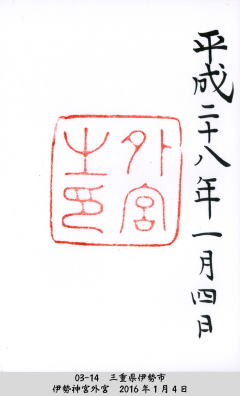 平成二十八年一月四日
外宮之印
03-14 三重県伊勢市
伊勢神宮外宮 2016年1月4日